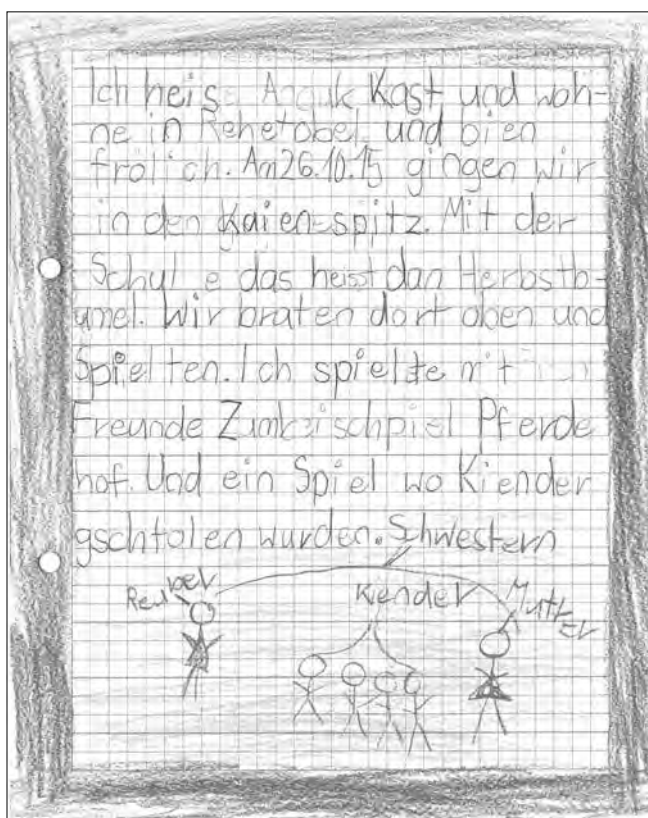 Ich heise Anouk Kast und woh-
ne in Rehetobel und bien
frölich. Am 26.10.15 gingen wir
in den Kaien-spitz. Mit der
Schule das heisst dan Herbstb-
umel. Wir braten dort oben und
Spielten. Ich spielte mit
Freunde Zumbeischpiel Pferde
hof. Und ein Spiel wo Kiender
gschtolen wurden. Schwestern
Reuber
Kiender
Mutter